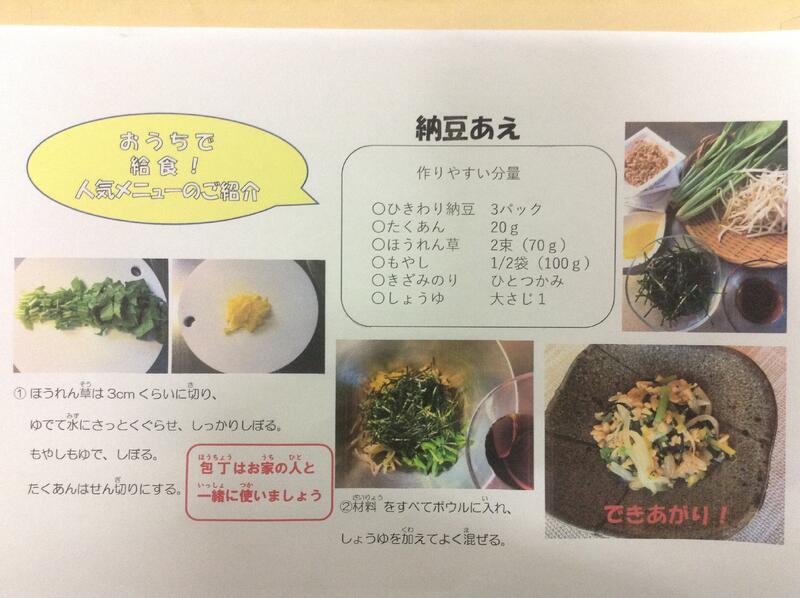 おうちで
給食！
人気メニューのご紹介
納豆あえ
作りやすい分量
〇ひきわり納豆 3パック
〇たくあん 20ｇ
〇ほうれん草 2束（70ｇ）
〇もやし 1/2袋（100ｇ）
〇きざみのり ひとつかみ
〇しょうゆ 大さじ１
① ほうれん草は3cmくらいに切り、
ゆでて水にさっとくぐらせ、しっかりしぼる。
もやしもゆで、しぼる。
たくあんはせん切りにする。
包丁はお家の人と
一緒に使いましょう
②材料 をすべてボウルに入れ、
しょうゆを加えてよく混ぜる。
できあがり！